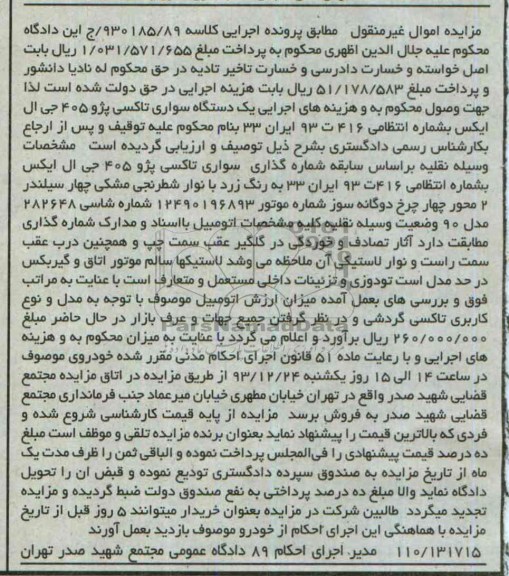 مزایده اموال غیرمنقول مطابق پرونده اجرایی کلاسه ۹۳۰۱۸۵/۸۹/ج این دادگاه
محکوم علیه جلال الدین اظهری محکوم به پرداخت مبلغ ۱/۰۳۱/۵۷۱/۶۵۵ ریال بابت
اصل خواسته و خسارت دادرسی و خسارت تاخیر تادیه در حق محکوم له نادیا دانشور
و پرداخت مبلغ ۵۱/۱۷۸/۵۸۳ ریال بابت هزینه اجرایی در حق دولت شده است لذا
جهت وصول محکوم به و هزینه های اجرایی یک دستگاه سواری تاکسی پژو ۴۰۵ جی ال
ایکس بشماره انتظامی ۴۱۶ ت ۹۳ ایران ۳۳ بنام محکوم علیه توقیف و پس از ارجاع
بکارشناس رسمی دادگستری بشرح ذیل توصیف و ارزیابی گردیده است مشخصات
وسیله نقلیه براساس سابقه شماره گذاری سواری تاکسی پژو ۴۰۵ جی ال ایکس
بشماره انتظامی ۴۱۶ت ۹۳ ایران ۳۳ به رنگ زرد با نوار شطرنجی مشکی چهار سیلندر
۲ محور چهار چرخ دوگانه سوز شماره موتور ۱۲۴۹۰۱۹۶۸۹۳ شماره شاسی ۲۸۲۶۴۸
مدل ۹۰ وضعیت وسیله نقلیه کلیه مشخصات اتومبیل بااسناد و مدارک شماره گذاری
مطابقت دارد آثار تصادف و خوردگی در گلگیر عقب سمت چپ و همچنین درب عقب
سمت راست و نوار لاستیکی آن ملاحظه می وشد لاستیکها سالم موتور اتاق و گیربکس
در حد مدل است تودوزی و تزئینات داخلی مستعمل و متعارف است با عنایت به مراتب
فوق و بررسی های بعمل آمده میزان ارزش اتومبیل موصوف با توجه به مدل و نوع
کاربری تاکسی گردشی و در نظر گرفتن جمیع جهات و عرف بازار در حال حاضر مبلغ
ParsNamadData
۲۶۰/۰۰۰/۰۰۰ ریال برآورد و اعلام می گردد با عنایت به میزان محکوم به و هزینه
های اجرایی و با رعایت ماده ۵۱ قانون اجرای احکام مدنی مقرر شده خودروی موصوف
در ساعت ۱۴ الی ۱۵ روز یکشنبه ۹۳/۱۲/۲۴ از طریق مزایده در اتاق مزایده مجتمع
قضایی شهید صدر واقع در تهران خیابان مطهری خیابان میرعماد جنب فرمانداری مجتمع
قضایی شهید صدر به فروش برسد مزایده از پایه قیمت کارشناسی شروع شده و
فردی که بالاترین قیمت را پیشنهاد نماید بعنوان برنده مزایده تلقی و موظف است مبلغ
ده درصد قیمت پیشنهادی را فی‌المجلس پرداخت نموده و الباقی ثمن را ظرف مدت یک
ماه از تاریخ مزایده به صندوق سپرده دادگستری تودیع نموده و قبض ان را تحویل
دادگاه نماید والا مبلغ ده درصد پرداختی به نفع صندوق دولت ضبط گردیده و مزایده
تجدید میگردد طالبین شرکت در مزایده بعنوان خریدار میتوانند ۵ روز قبل از تاریخ
مزایده با هماهنگی این اجرای احکام از خودرو موصوف بازدید بعمل آورند
۱۱۰/۱۳۱۷۱۵ مدیر اجرای احکام ۸۹ دادگاه عمومی مجتمع شهید صدر تهران